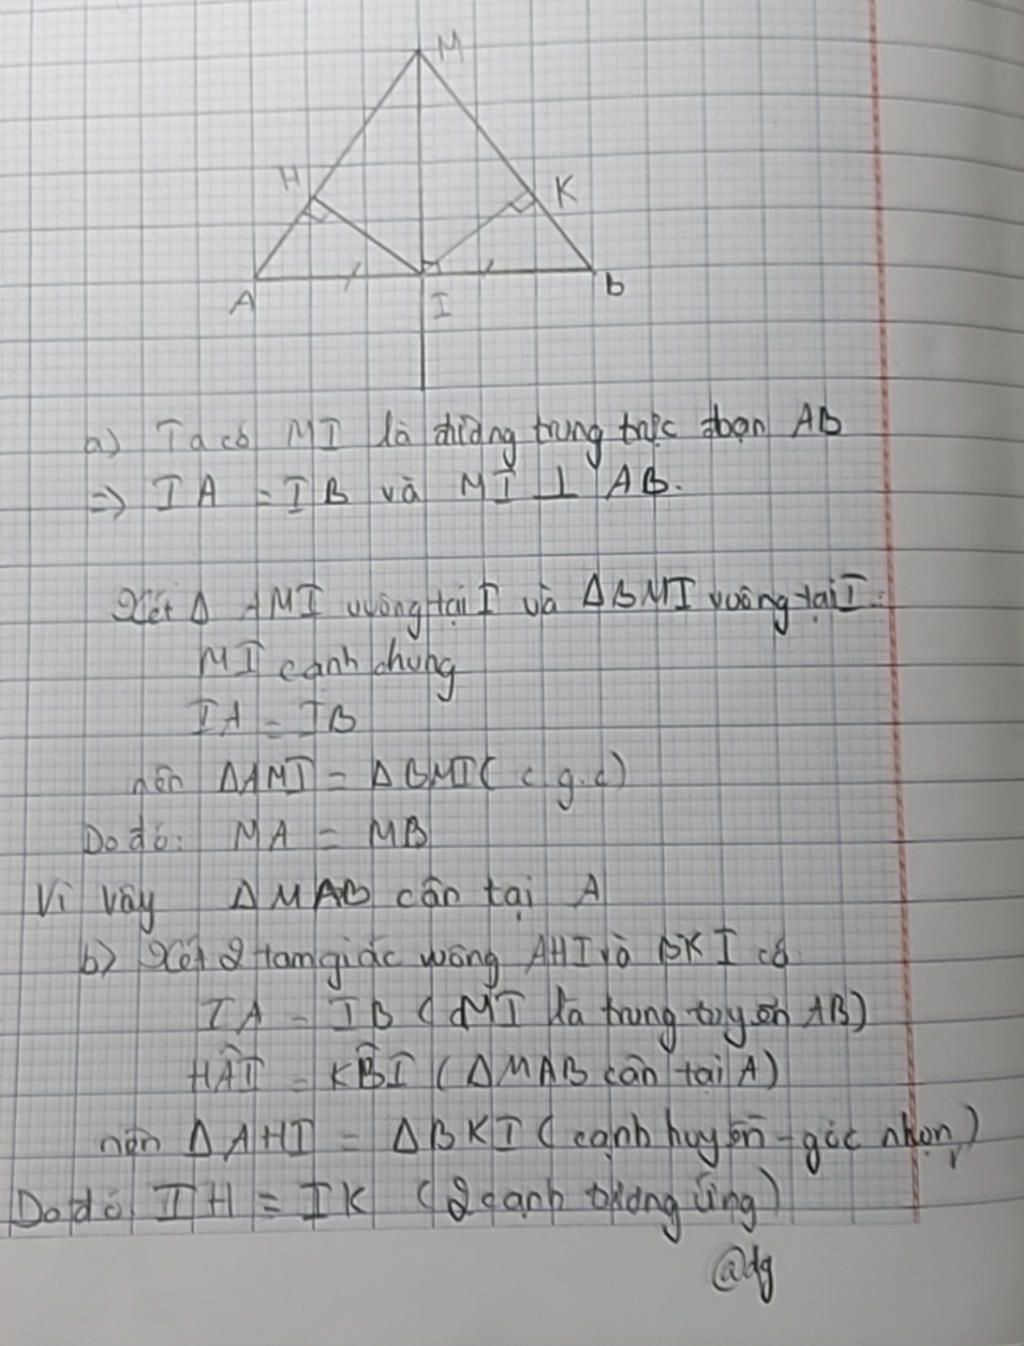 M
H
K
A
I
B
a) Ta có MI là đường trung trực đoạn AB
=> IA = IB và MI ⊥ AB.
Xét Δ AMI vuông tại I và ΔBMI vuông tại I:
MI cạnh chung
IA = IB
nên ΔAMI = ΔBMI (c.g.c)
Do đó: MA = MB
Vì vậy ΔMAB cân tại A
b) Xét 2 tam giác vuông AHI và BKI có
IA = IB (MI là trung tuyến AB)
HÂI = KB̂I (ΔMAB cân tại A)
nên ΔAHI = ΔBKI (cạnh huyền - góc nhọn)
Do đó IH = IK (2 cạnh tương ứng)
@dg